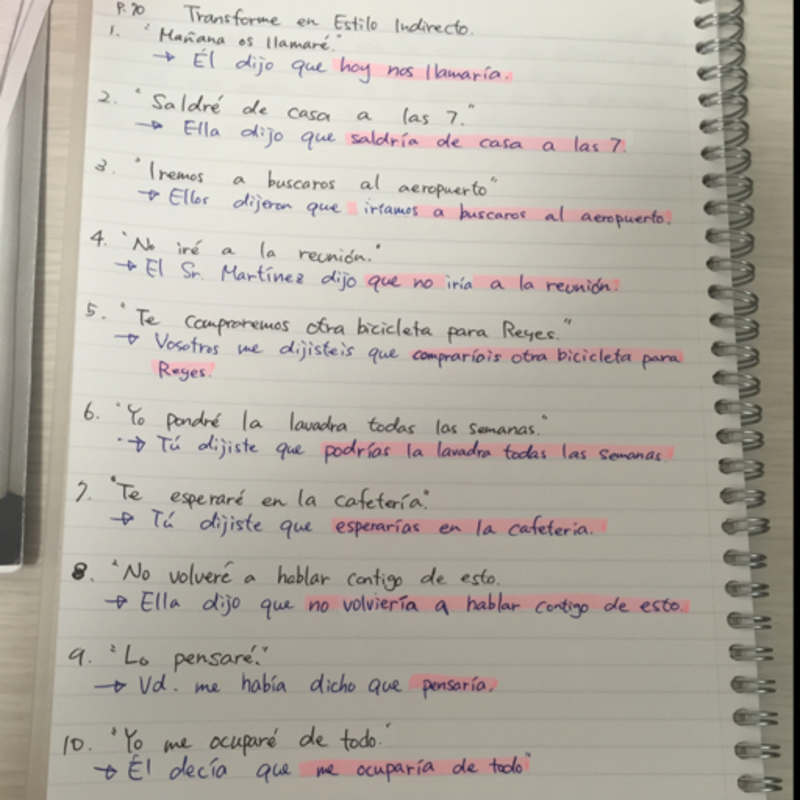 P.70 Transforme en Estilo Indirecto.
1. "Mañana os llamaré."
→ Él dijo que hoy nos llamaría.
2. "Saldré de casa a las 7."
→ Ella dijo que saldría de casa a las 7.
3. "Iremos a buscaros al aeropuerto"
→ Ellos dijeron que iríamos a buscaros al aeropuerto.
4. "No iré a la reunión."
→ El Sr. Martínez dijo que no iría a la reunión.
5. "Te compraremos otra bicicleta para Reyes."
→ Vosotros me dijisteis que compraríais otra bicicleta para
Reyes.
6. "Yo pondré la lavadra todas las semanas."
→ Tú dijiste que podrías la lavadra todas las semanas.
7. "Te esperaré en la cafetería".
→ Tú dijiste que esperarías en la cafeteria.
8. "No volveré a hablar contigo de esto.
→ Ella dijo que no volviería a hablar contigo de esto.
9. "Lo pensaré."
→ Vd. me había dicho que pensaría.
10. "Yo me ocuparé de todo."
→ Él decía que me ocuparía de todo"